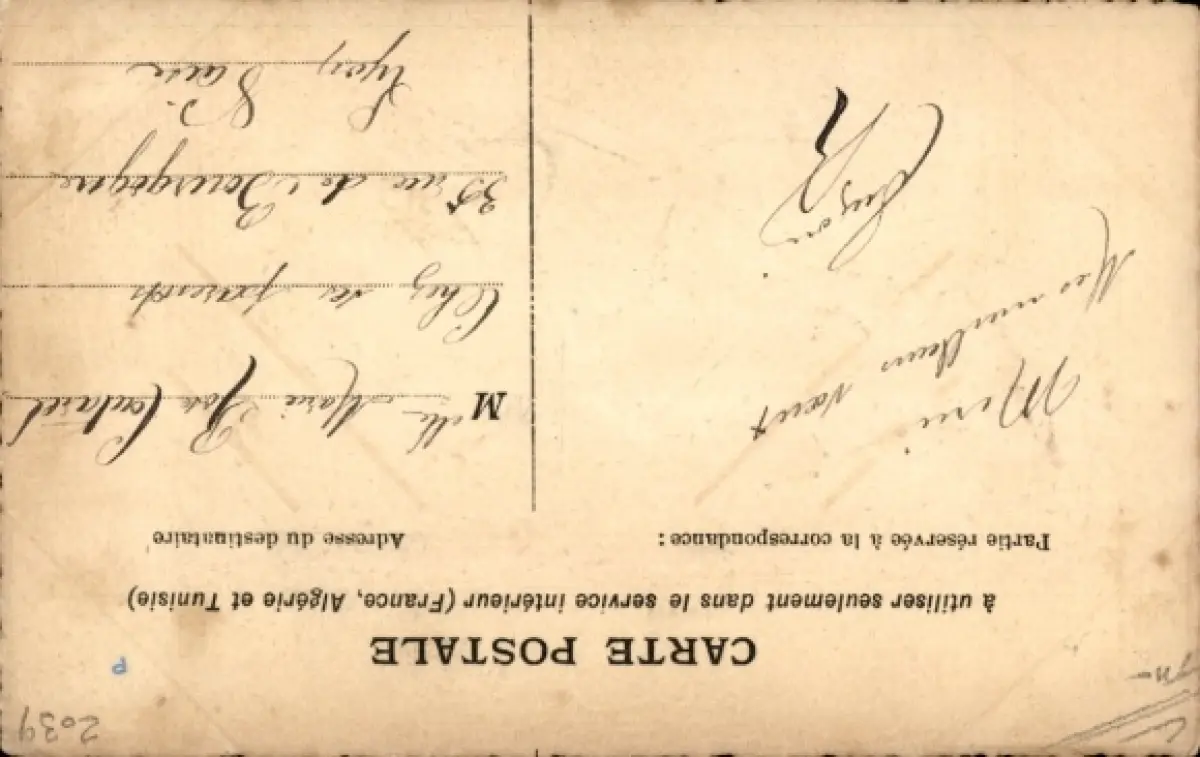 CARTE POSTALE
à utiliser seulement dans le service intérieur (France, Algérie et Tunisie)
Partie réservée à la correspondance :
Merci
Mes meilleurs vœux
Suzon
Adresse du destinataire
Melle Marie
Chez ses parents
35 rue de Bourgogne
Lyon, Vaise
2039
P